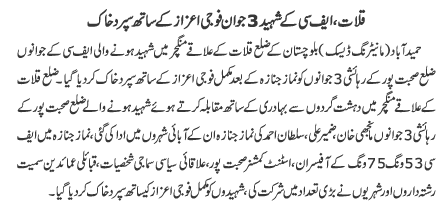 قلات، ایف سی کے شہید 3 جوان فوجی اعزاز کے ساتھ سپرد خاک
حمید آباد (مانیٹرنگ ڈیسک) بلوچستان کے ضلع قلات کے علاقے منگچر میں شہید ہونے والی ایف سی کے جوانوں
ضلع صحبت پور کے رہائشی 3 جوانوں کو نماز جنازہ کے بعد مکمل فوجی اعزاز کے ساتھ سپرد خاک کر دیا گیا۔ ضلع قلات
کے علاقے منگچر میں دہشت گردوں سے بہادری کے ساتھ مقابلہ کرتے ہوئے شہید ہونے والے ضلع صحبت پور کے
رہائشی 3 جوانوں مانجھی خان، ضمیر علی، سلطان احمد کی نماز جنازہ ان کے آبائی شہروں میں ادا کی گئی، نماز جنازہ میں ایف
سی 53 ونگ 75 ونگ کے آفیسران، اسسٹنٹ کمشنر صحبت پور، علاقائی سیاسی سماجی شخصیات، قبائلی عمائدین سمیت
رشتہ داروں اور شہریوں نے بڑی تعداد میں شرکت کی، شہیدوں کو مکمل فوجی اعزاز کیساتھ سپرد خاک کر دیا گیا۔